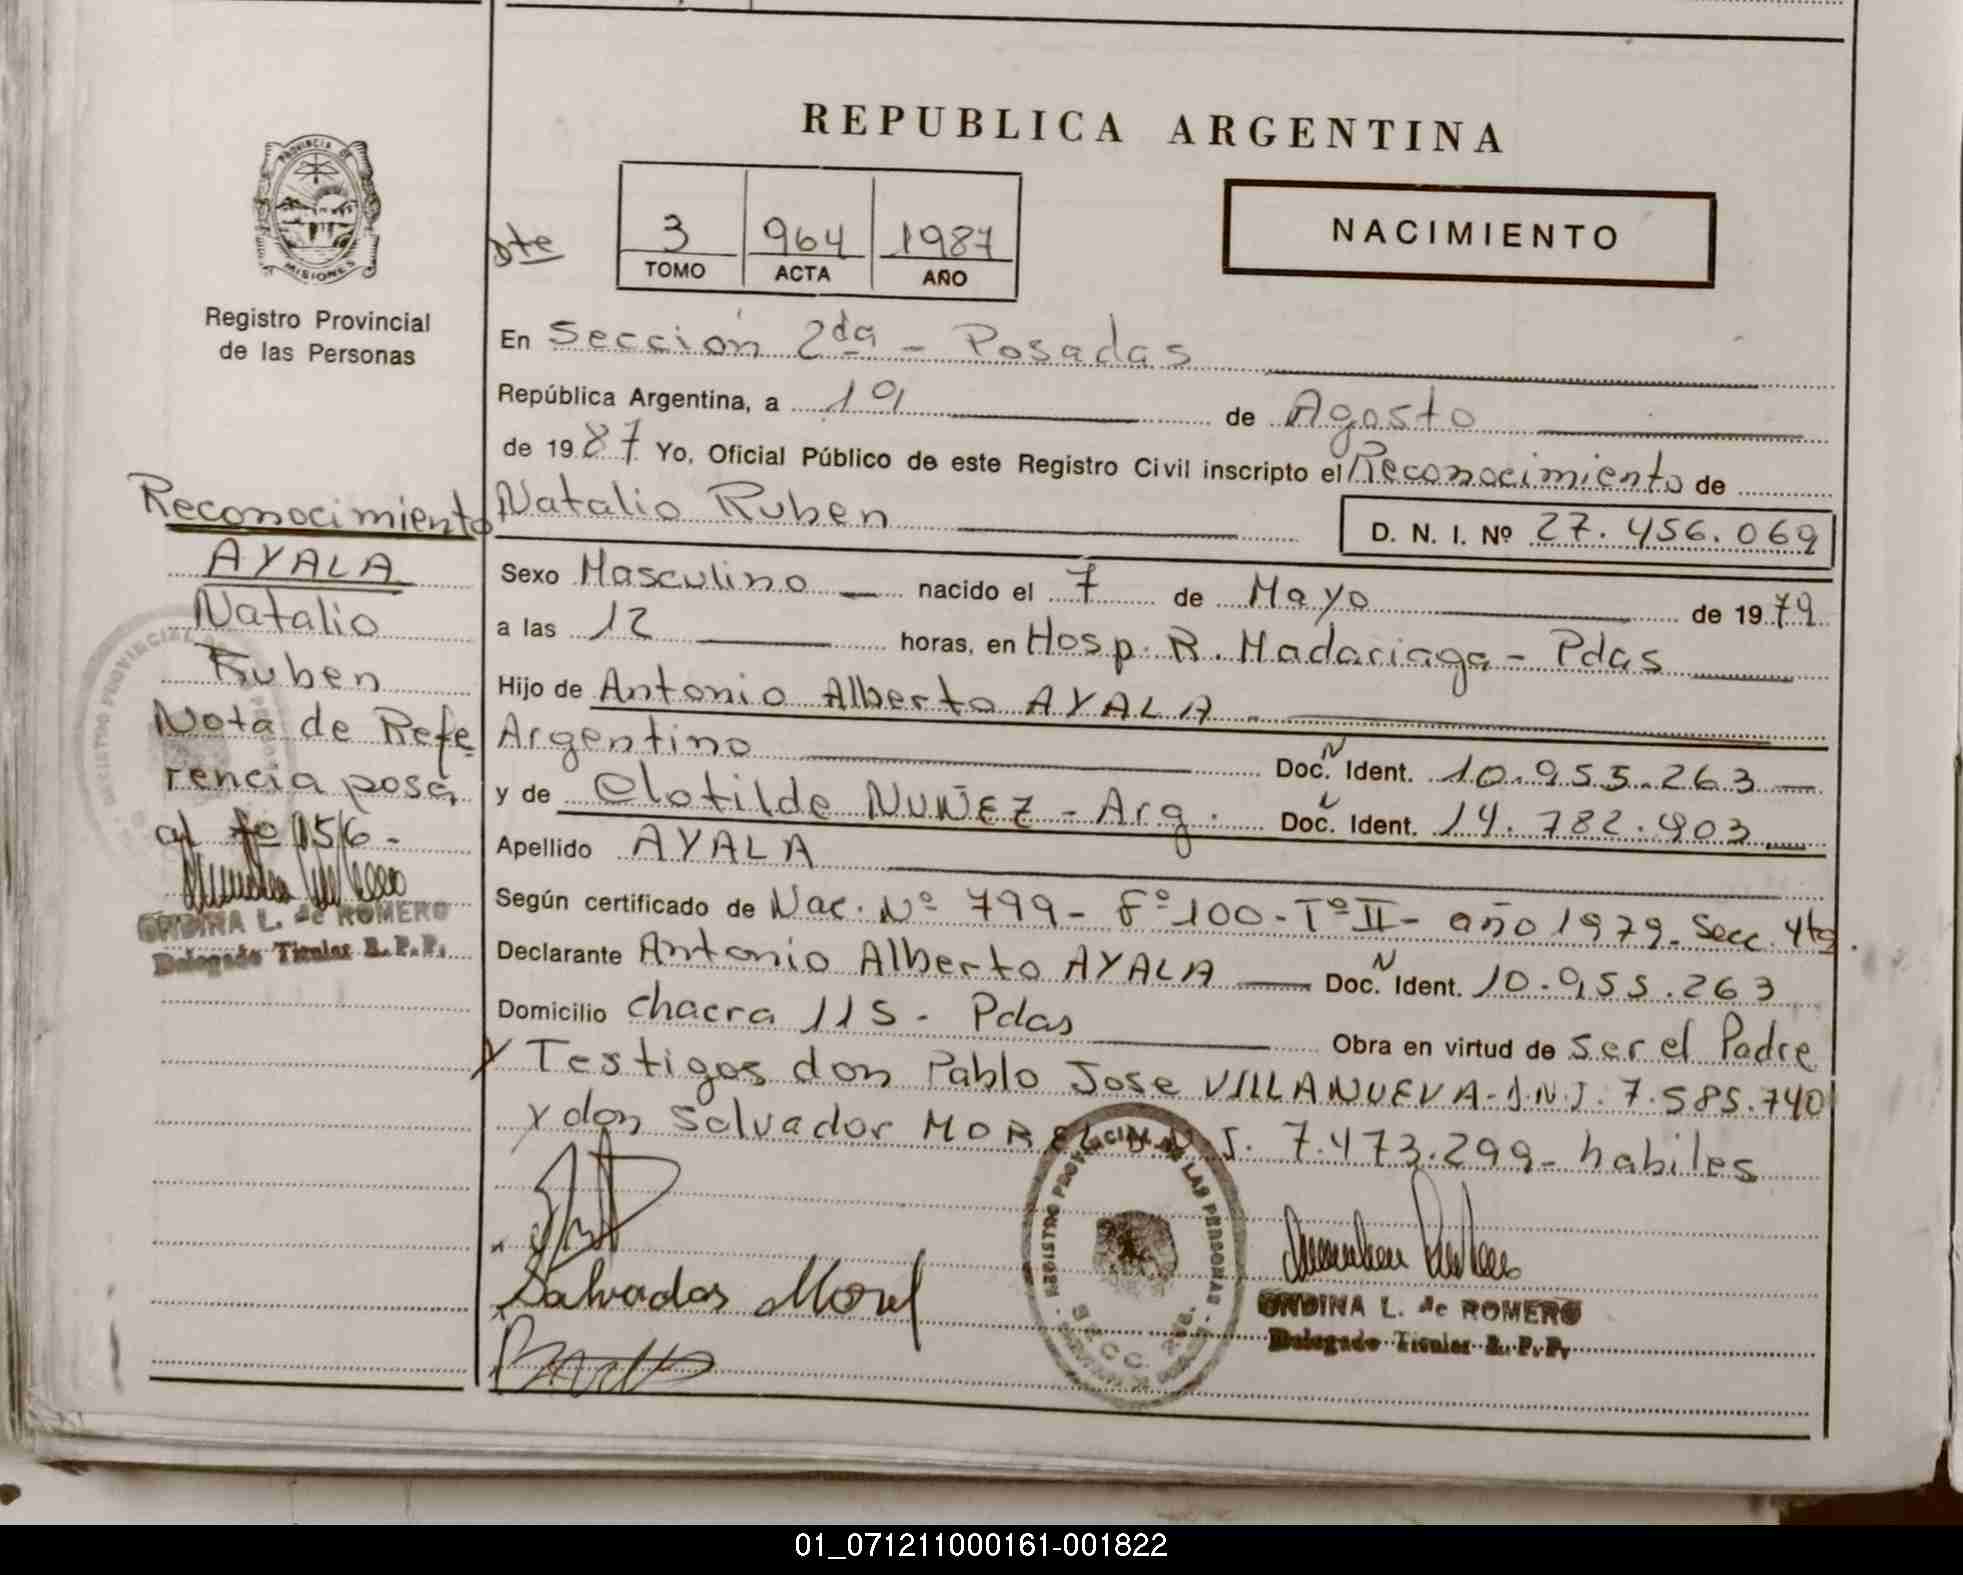 REPUBLICA ARGENTINA
PROVINCIA DE
MISIONES
Registro Provincial
de las Personas
3 964 1987
TOMO ACTA AÑO
NACIMIENTO
En Sección 2da - Posadas
República Argentina, a 19 de Agosto
de 1987 Yo, Oficial Público de este Registro Civil inscripto el Reconocimiento de
Natalio Ruben D. N. I. Nº 27.456.069
Sexo Masculino nacido el 7 de Mayo de 1979
a las 12 horas, en Hosp. R. Madariaga - Pdas
Hijo de Antonio Alberto AYALA
Argentino Doc. N Ident. 10.955.263
y de Clotilde NUÑEZ - Arg. Doc. Ident. 14.782.903
Apellido AYALA
Según certificado de Nac. Nº 799 - Fº 100 - Tº II - año 1979 - Secc. 4ta.
Declarante Antonio Alberto AYALA Doc. N Ident. 10.955.263
Domicilio Chacra 115 - Pdas Obra en virtud de ser el Padre
y Testigos don Pablo Jose VILLANUEVA - D.N.I. 7.585.740
y don Salvador MOREL D.N.I. 7.473.299 - habiles
Salvador Morel
REGISTRO PROVINCIAL DE LAS PERSONAS
SECC. 2da.
ONDINA L. de ROMERO
Delegado Titular R. P. P.
Reconocimiento
AYALA
Natalio
Ruben
Nota de Refe
rencia posa
al fo 156 -
ONDINA L. de ROMERO
Delegado Titular R. P. P.
01_071211000161-001822